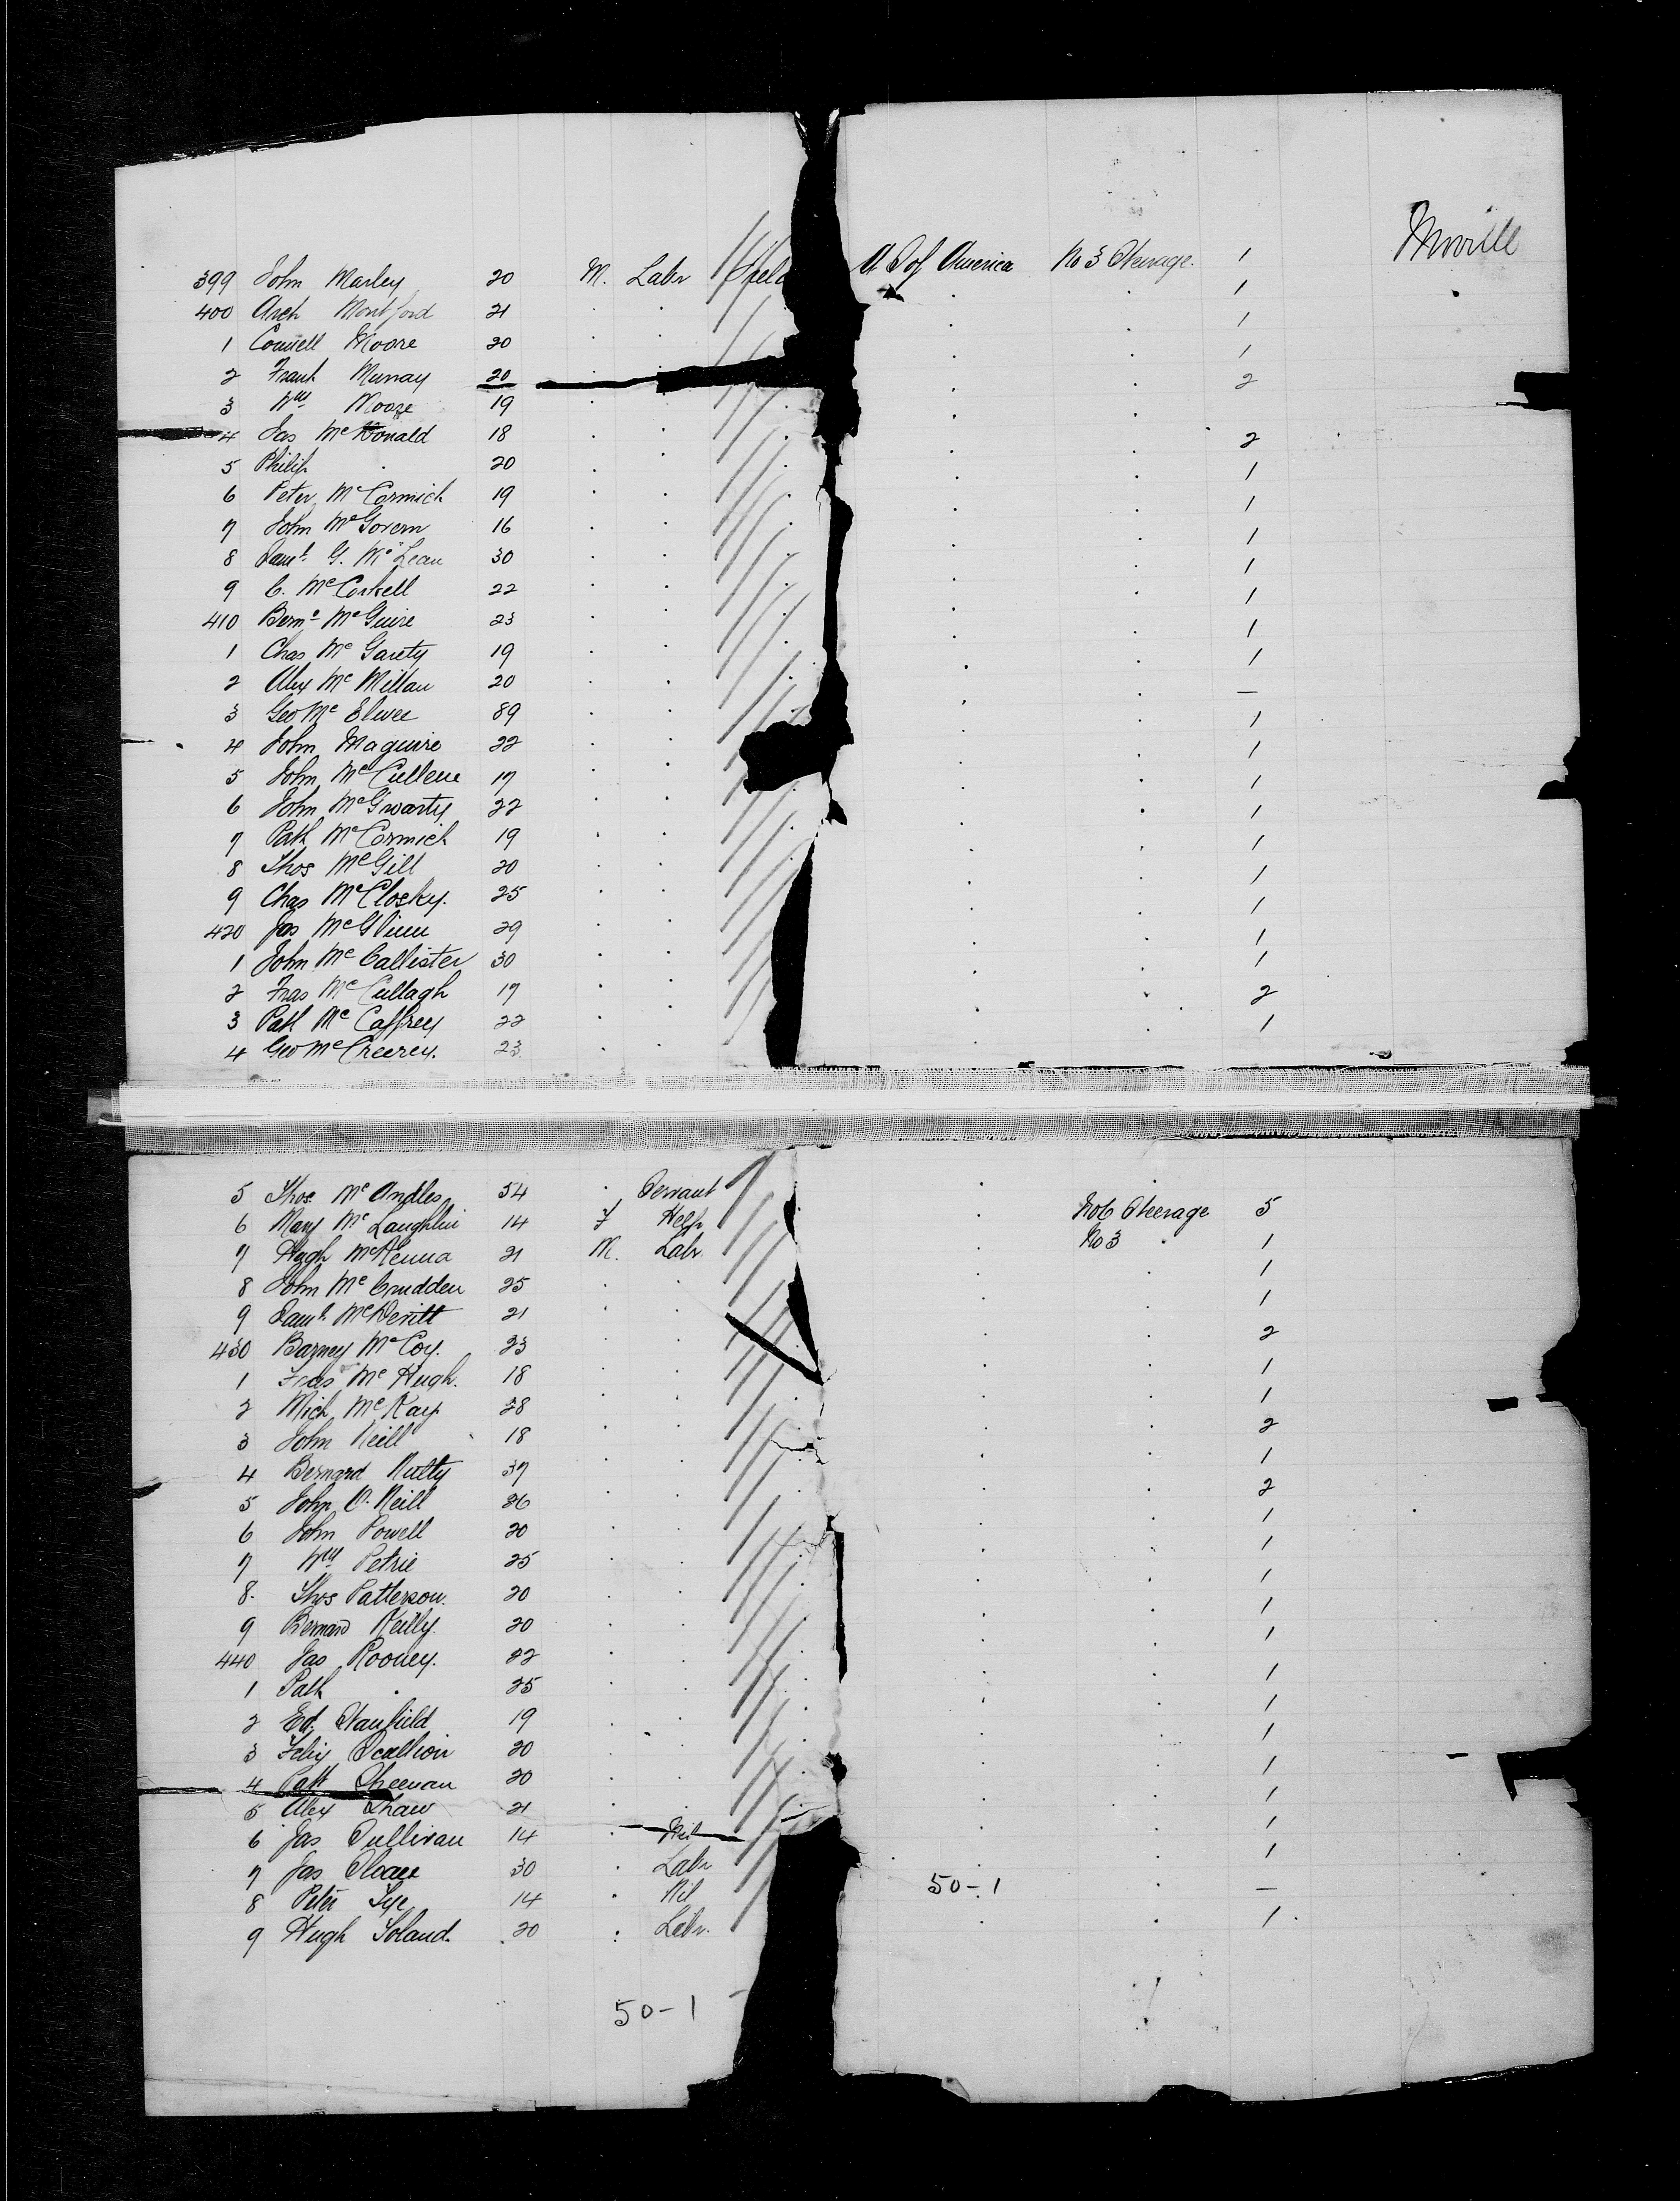 Moville
399 John Marley 20 M. Labr U S of America No 3 Steerage. 1
400 Arch Montford 21 . . . . 1
1 Connell Moore 20 . . . . 1
2 Frank Murray 20 . . . . 1
3 Wm Moore 19 . . . . 2
4 Jas McDonald 18 . . . .
5 Philip . 20 . . . . 2
6 Peter McCormick 19 . . . . 1
7 John McGovern 16 . . . . 1
8 Danl. G. McLean 30 . . . . 1
9 C. McCorkell 22 . . . . 1
410 Bernd McGuire 23 . . . . 1
1 Chas McGarety 19 . . . . 1
2 Alex McMillan 20 . . . . 1
3 Geo McElwee 89 . . . . —
4 John Maguire 22 . . . . 1
5 John McCullen 17 . . . . 1
6 John McGwarty 22 . . . . 1
7 Patk McCormick 19 . . . . 1
8 Thos McGill 20 . . . . 1
9 Chas McClosky. 25 . . . . 1
420 Jas McGlinn 29 . . . . 1
1 John McCallister 30 . . . . 1
2 Fras McCullagh 17 . . . . 1
3 Patk McCaffrey 22 . . . . 2
4 Geo McCreerey. 23 . . . . 1
5 Thos. McAndles 54 . Servant . .
6 Mary McLaughlin 14 F Help . No 6 Steerage 5
7 Hugh McKenna 21 M. Labr. . No 3 . 1
8 John McCrudden 25 . . . . 1
9 Danl. McDevitt 21 . . . . 1
430 Barney McCoy. 23 . . . . 2
1 Fras McHugh. 18 . . . . 1
2 Mich McKay 28 . . . . 1
3 John Neill 18 . . . . 2
4 Bernard Nulty 37 . . . . 1
5 John O.Neill 26 . . . . 2
6 John Powell 20 . . . . 1
7 Wm Petrie 25 . . . . 1
8. Thos Patterson. 20 . . . . 1
9 Bernard Reilly. 20 . . . . 1
440 Jas Rooney. 22 . . . . 1
1 Patk . 25 . . . . 1
2 Ed. Stanfield 19 . . . . 1
3 Felix Scallion 20 . . . . 1
4 Patk Sheenan 20 . . . . 1
5 Alex Shaw 21 . . . . 1
6 Jas Sullivan 14 . Nil . . 1
7 Jas Sloan 30 . Labr . . 1
8 Peter Tye 14 . Nil 50-1 . —
9 Hugh Toland. 20 . Labr. . . 1.
50-1